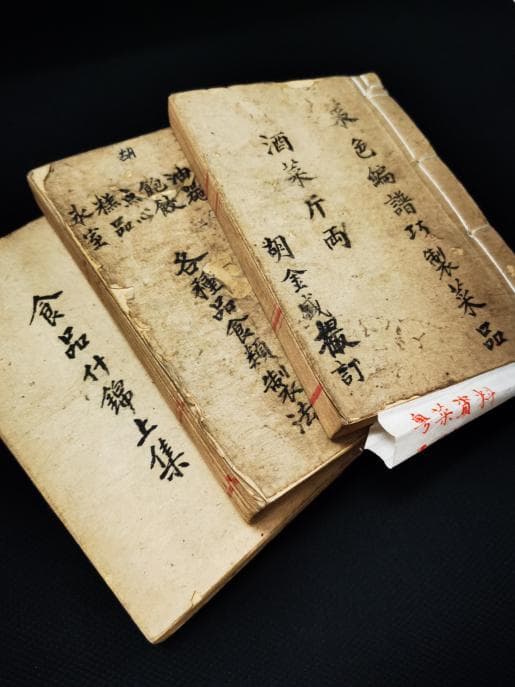 菜色編譜巧製菜品
酒菜斤両
胡金盛訂
粤菜資料
胡
油器
飽餃
点心
糕品
氷室
各種品食類製法
食品什錦上集